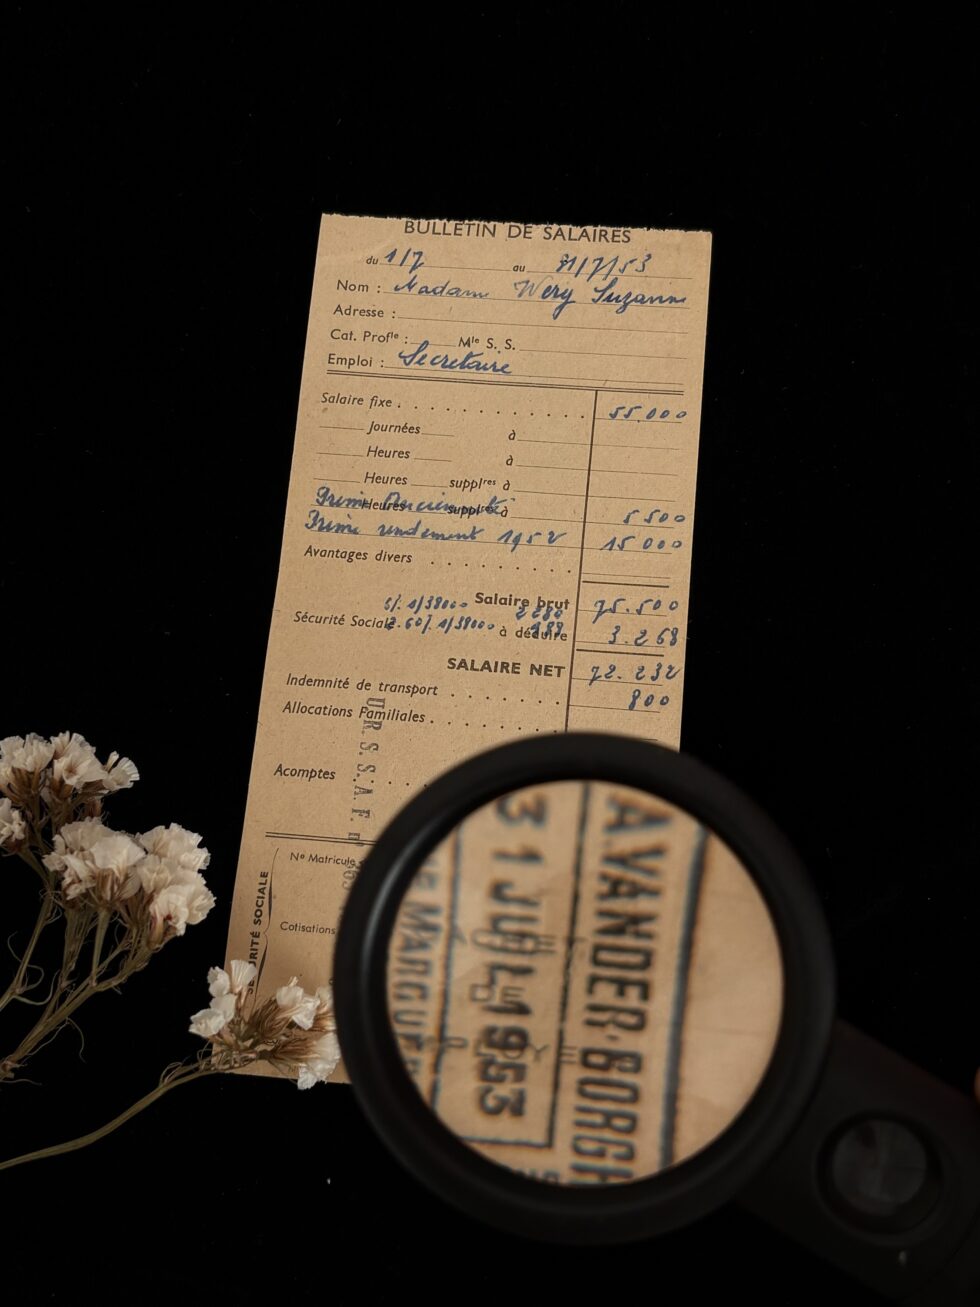 BULLETIN DE SALAIRES
du 1/7 au 31/7/53
Nom : Madame Wery Suzanne
Adresse :
Cat. Profle : Mle S. S.
Emploi : Secretaire
Salaire fixe 55.000
Journées à
Heures à
Heures supplres à
Heures supplres à 5 500
Prime rendement 1952 15 000
Avantages divers
Salaire brut 75.500
5% s/38000 2280
Sécurité Sociale à déduire 3.268
SALAIRE NET 72.232
Indemnité de transport 800
Allocations Familiales
U.R.S.S.A.F.
Acomptes
No Matricule
Cotisations
SÉCURITÉ SOCIALE
A.VANDER-BORGH
31 JUIL 1953
MARGUE